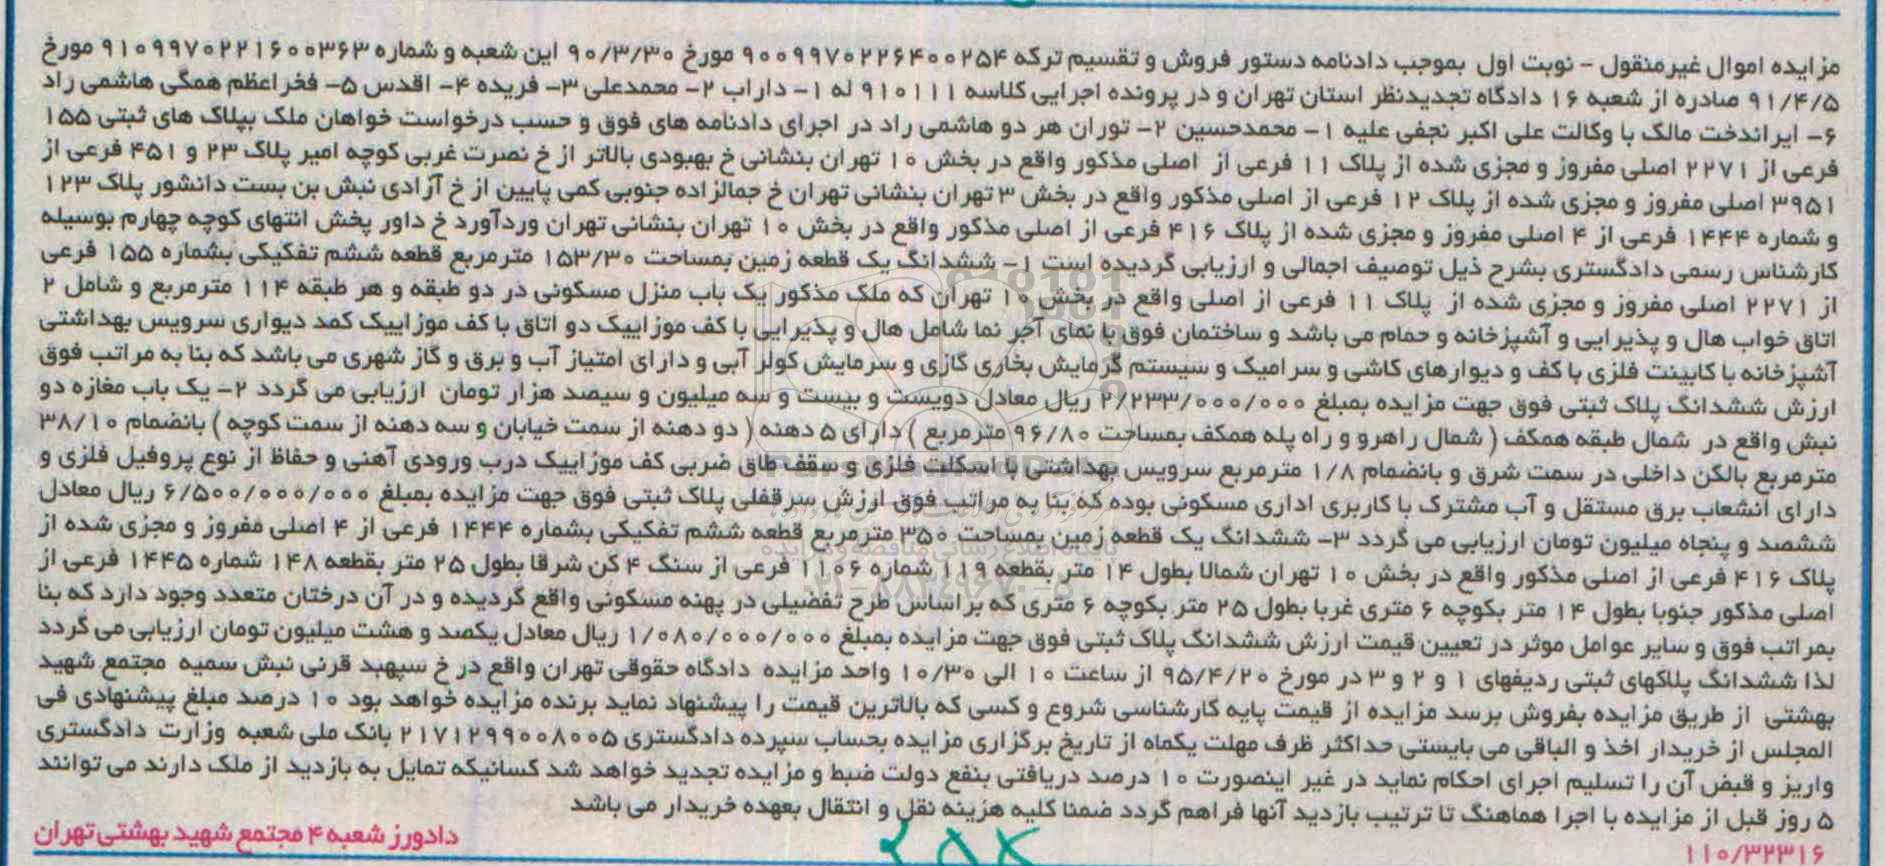 مزایده اموال غیرمنقول - نوبت اول بموجب دادنامه دستور فروش و تقسیم ترکه ۹۰۰۹۹۷۰۲۲۶۴۰۰۲۵۴ مورخ ۹۰/۳/۳۰ این شعبه و شماره ۹۱۰۹۹۷۰۲۲۱۶۰۰۳۶۳ مورخ
۹۱/۴/۵ صادره از شعبه ۱۶ دادگاه تجدیدنظر استان تهران و در پرونده اجرایی کلاسه ۹۱۰۱۱۱ له ۱- داراب ۲- محمدعلی ۳- فریده ۴- اقدس ۵- فخراعظم همگی هاشمی راد
۶- ایراندخت مالک با وکالت علی اکبر نجفی علیه ۱- محمدحسین ۲- توران هر دو هاشمی راد در اجرای دادنامه های فوق و حسب درخواست خواهان ملک بپلاک های ثبتی ۱۵۵
فرعی از ۲۲۷۱ اصلی مفروز و مجزی شده از پلاک ۱۱ فرعی از اصلی مذکور واقع در بخش ۱۰ تهران بنشانی خ بهبودی بالاتر از خ نصرت غربی کوچه امیر پلاک ۲۳ و ۴۵۱ فرعی از
۳۹۵۱ اصلی مفروز و مجزی شده از پلاک ۱۲ فرعی از اصلی مذکور واقع در بخش ۳ تهران بنشانی تهران خ جمالزاده جنوبی کمی پایین از خ آزادی نبش بن بست دانشور پلاک ۱۲۳
و شماره ۱۴۴۴ فرعی از ۴ اصلی مفروز و مجزی شده از پلاک ۴۱۶ فرعی از اصلی مذکور واقع در بخش ۱۰ تهران بنشانی تهران وردآورد خ داور پخش انتهای کوچه چهارم بوسیله
کارشناس رسمی دادگستری بشرح ذیل توصیف اجمالی و ارزیابی گردیده است ۱- ششدانگ یک قطعه زمین بمساحت ۱۵۳/۳۰ مترمربع قطعه ششم تفکیکی بشماره ۱۵۵ فرعی
از ۲۲۷۱ اصلی مفروز و مجزی شده از پلاک ۱۱ فرعی از اصلی واقع در بخش ۱۰ تهران که ملک مذکور یک باب منزل مسکونی در دو طبقه و هر طبقه ۱۱۴ مترمربع و شامل ۲
اتاق خواب هال و پذیرایی و آشپزخانه و حمام می باشد و ساختمان فوق با نمای آجر نما شامل هال و پذیرایی با کف موزاییک دو اتاق با کف موزاییک کمد دیواری سرویس بهداشتی
آشپزخانه با کابینت فلزی با کف و دیوارهای کاشی و سرامیک و سیستم گرمایش بخاری گازی و سرمایش کولر آبی و دارای امتیاز آب و برق و گاز شهری می باشد که بنا به مراتب فوق
ارزش ششدانگ پلاک ثبتی فوق جهت مزایده بمبلغ ۲/۲۳۳/۰۰۰/۰۰۰ ریال معادل دویست و بیست و سه میلیون و سیصد هزار تومان ارزیابی می گردد ۲- یک باب مغازه دو
نبش واقع در شمال طبقه همکف ( شمال راهرو و راه پله همکف بمساحت ۹۶/۸۰ مترمربع ) دارای ۵ دهنه ( دو دهنه از سمت خیابان و سه دهنه از سمت کوچه ) بانضمام ۳۸/۱۰
مترمربع بالکن داخلی در سمت شرق و بانضمام ۱/۸ مترمربع سرویس بهداشتی با اسکلت فلزی و سقف طاق ضربی کف موزاییک درب ورودی آهنی و حفاظ از نوع پروفیل فلزی و
دارای انشعاب برق مستقل و آب مشترک با کاربری اداری مسکونی بوده که بنا به مراتب فوق ارزش سرقفلی پلاک ثبتی فوق جهت مزایده بمبلغ ۶/۵۰۰/۰۰۰/۰۰۰ ریال معادل
ششصد و پنجاه میلیون تومان ارزیابی می گردد ۳- ششدانگ یک قطعه زمین بمساحت ۳۵۰ مترمربع قطعه ششم تفکیکی بشماره ۱۴۴۴ فرعی از ۴ اصلی مفروز و مجزی شده از
پلاک ۴۱۶ فرعی از اصلی مذکور واقع در بخش ۱۰ تهران شمالا بطول ۱۴ متر بقطعه ۱۱۹ شماره ۱۱۰۶ فرعی از سنگ ۴ کن شرقا بطول ۲۵ متر بقطعه ۱۴۸ شماره ۱۴۴۵ فرعی از
اصلی مذکور جنوبا بطول ۱۴ متر بکوچه ۶ متری غربا بطول ۲۵ متر بکوچه ۶ متری که براساس طرح تفضیلی در پهنه مسکونی واقع گردیده و در آن درختان متعدد وجود دارد که بنا
بمراتب فوق و سایر عوامل موثر در تعیین قیمت ارزش ششدانگ پلاک ثبتی فوق جهت مزایده بمبلغ ۱/۰۸۰/۰۰۰/۰۰۰ ریال معادل یکصد و هشت میلیون تومان ارزیابی می گردد
لذا ششدانگ پلاکهای ثبتی ردیفهای ۱ و ۲ و ۳ در مورخ ۹۵/۴/۲۰ از ساعت ۱۰ الی ۱۰/۳۰ واحد مزایده دادگاه حقوقی تهران واقع در خ سپهبد قرنی نبش سمیه مجتمع شهید
بهشتی از طریق مزایده بفروش برسد مزایده از قیمت پایه کارشناسی شروع و کسی که بالاترین قیمت را پیشنهاد نماید برنده مزایده خواهد بود ۱۰ درصد مبلغ پیشنهادی فی
المجلس از خریدار اخذ و الباقی می بایستی حداکثر ظرف مهلت یکماه از تاریخ برگزاری مزایده بحساب سپرده دادگستری ۲۱۷۱۲۹۹۰۰۸۰۰۵ بانک ملی شعبه وزارت دادگستری
واریز و قبض آن را تسلیم اجرای احکام نماید در غیر اینصورت ۱۰ درصد دریافتی بنفع دولت ضبط و مزایده تجدید خواهد شد کسانیکه تمایل به بازدید از ملک دارند می توانند
۵ روز قبل از مزایده با اجرا هماهنگ تا ترتیب بازدید آنها فراهم گردد ضمنا کلیه هزینه نقل و انتقال بعهده خریدار می باشد
دادورز شعبه ۴ مجتمع شهید بهشتی تهران
۱۱۰/۳۲۳۱۶